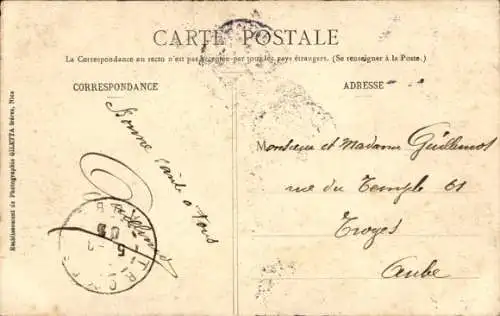 CARTE POSTALE
La Correspondance au recto n'est pas acceptée par tous les pays étrangers. (Se renseigner à la Poste.)
CORRESPONDANCE
ADRESSE
Etablissement de Photographie GILETTA frères, Nice
Bonne santé a tous
Monsieur et Madame Guillemot
rue du Temple 61
Troyes
Aube